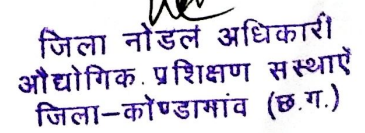 जिला नोडल अधिकारी
औद्योगिक प्रशिक्षण संस्थाएँ
जिला-कोण्डागांव (छ.ग.)